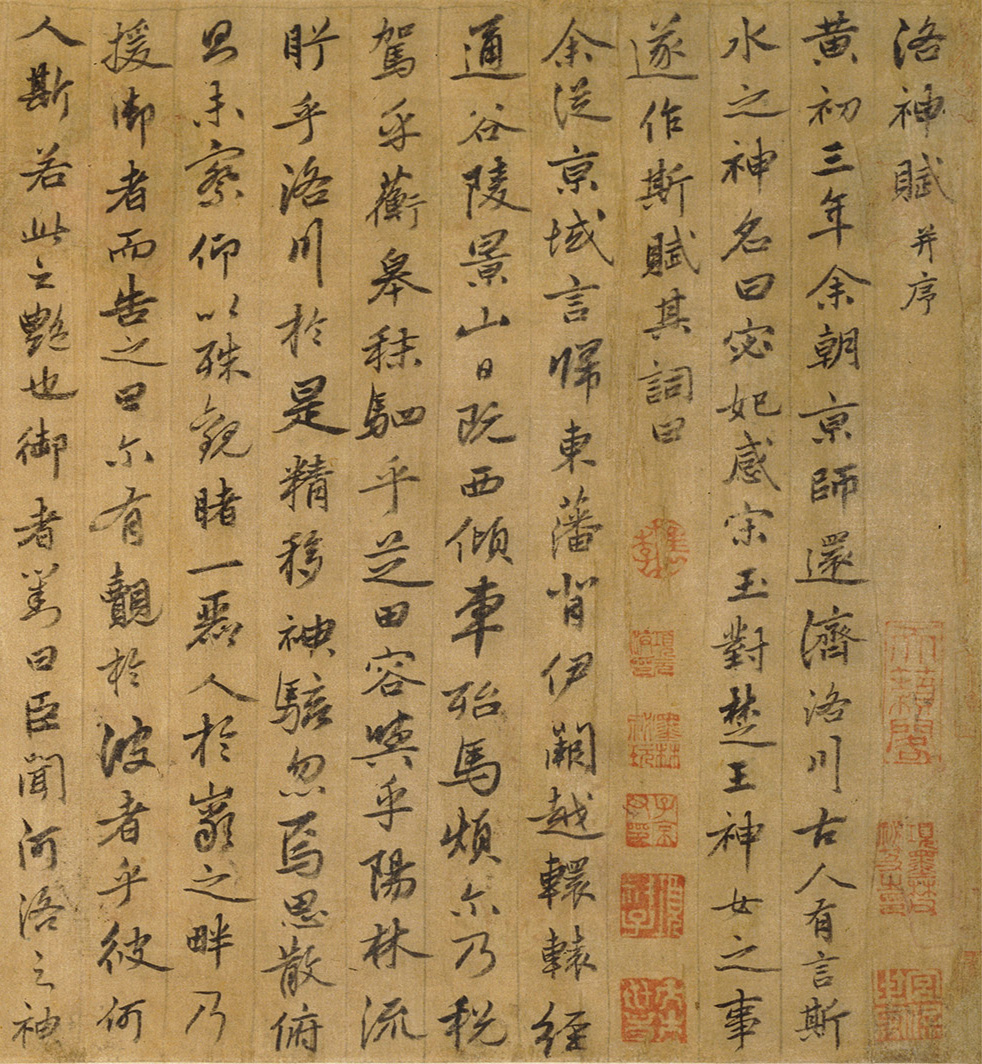 洛神賦并序
黄初三年余朝京師還濟洛川古人有言斯
水之神名曰宓妃感宋玉對楚王神女之事
遂作斯賦其詞曰
余從京域言歸東藩背伊闕越轘轅經
通谷陵景山日既西傾車殆馬煩尒乃税
駕乎蘅皋秣駟乎芝田容與乎陽林流
眄乎洛川於是精移神駭忽焉思散俯
則未察仰以殊觀睹一麗人於巖之畔乃
援御者而告之曰尒有覿於彼者乎彼何
人斯若此之艷也御者對曰臣聞河洛之神
天籟閣
墨林祕玩
子京父印